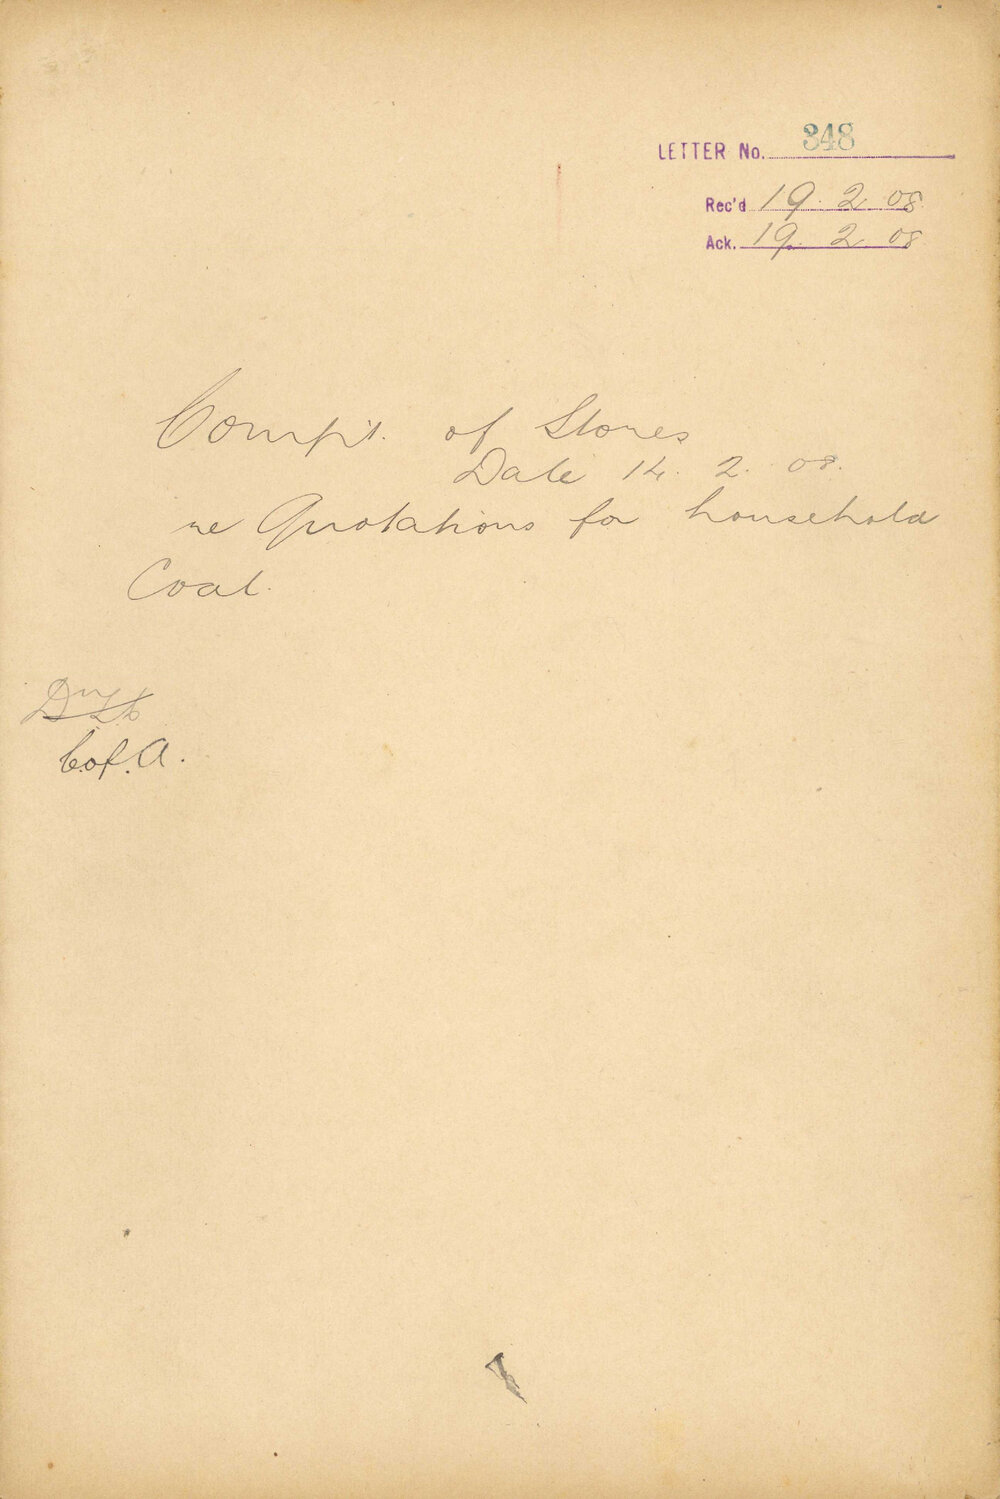 LETTER No. 348
Rec'd 19. 2. 08
Ack. 19. 2. 08
Compt. of Stores
Date 14. 2. 08.
re Quotations for household
Coal.
C.of.A.